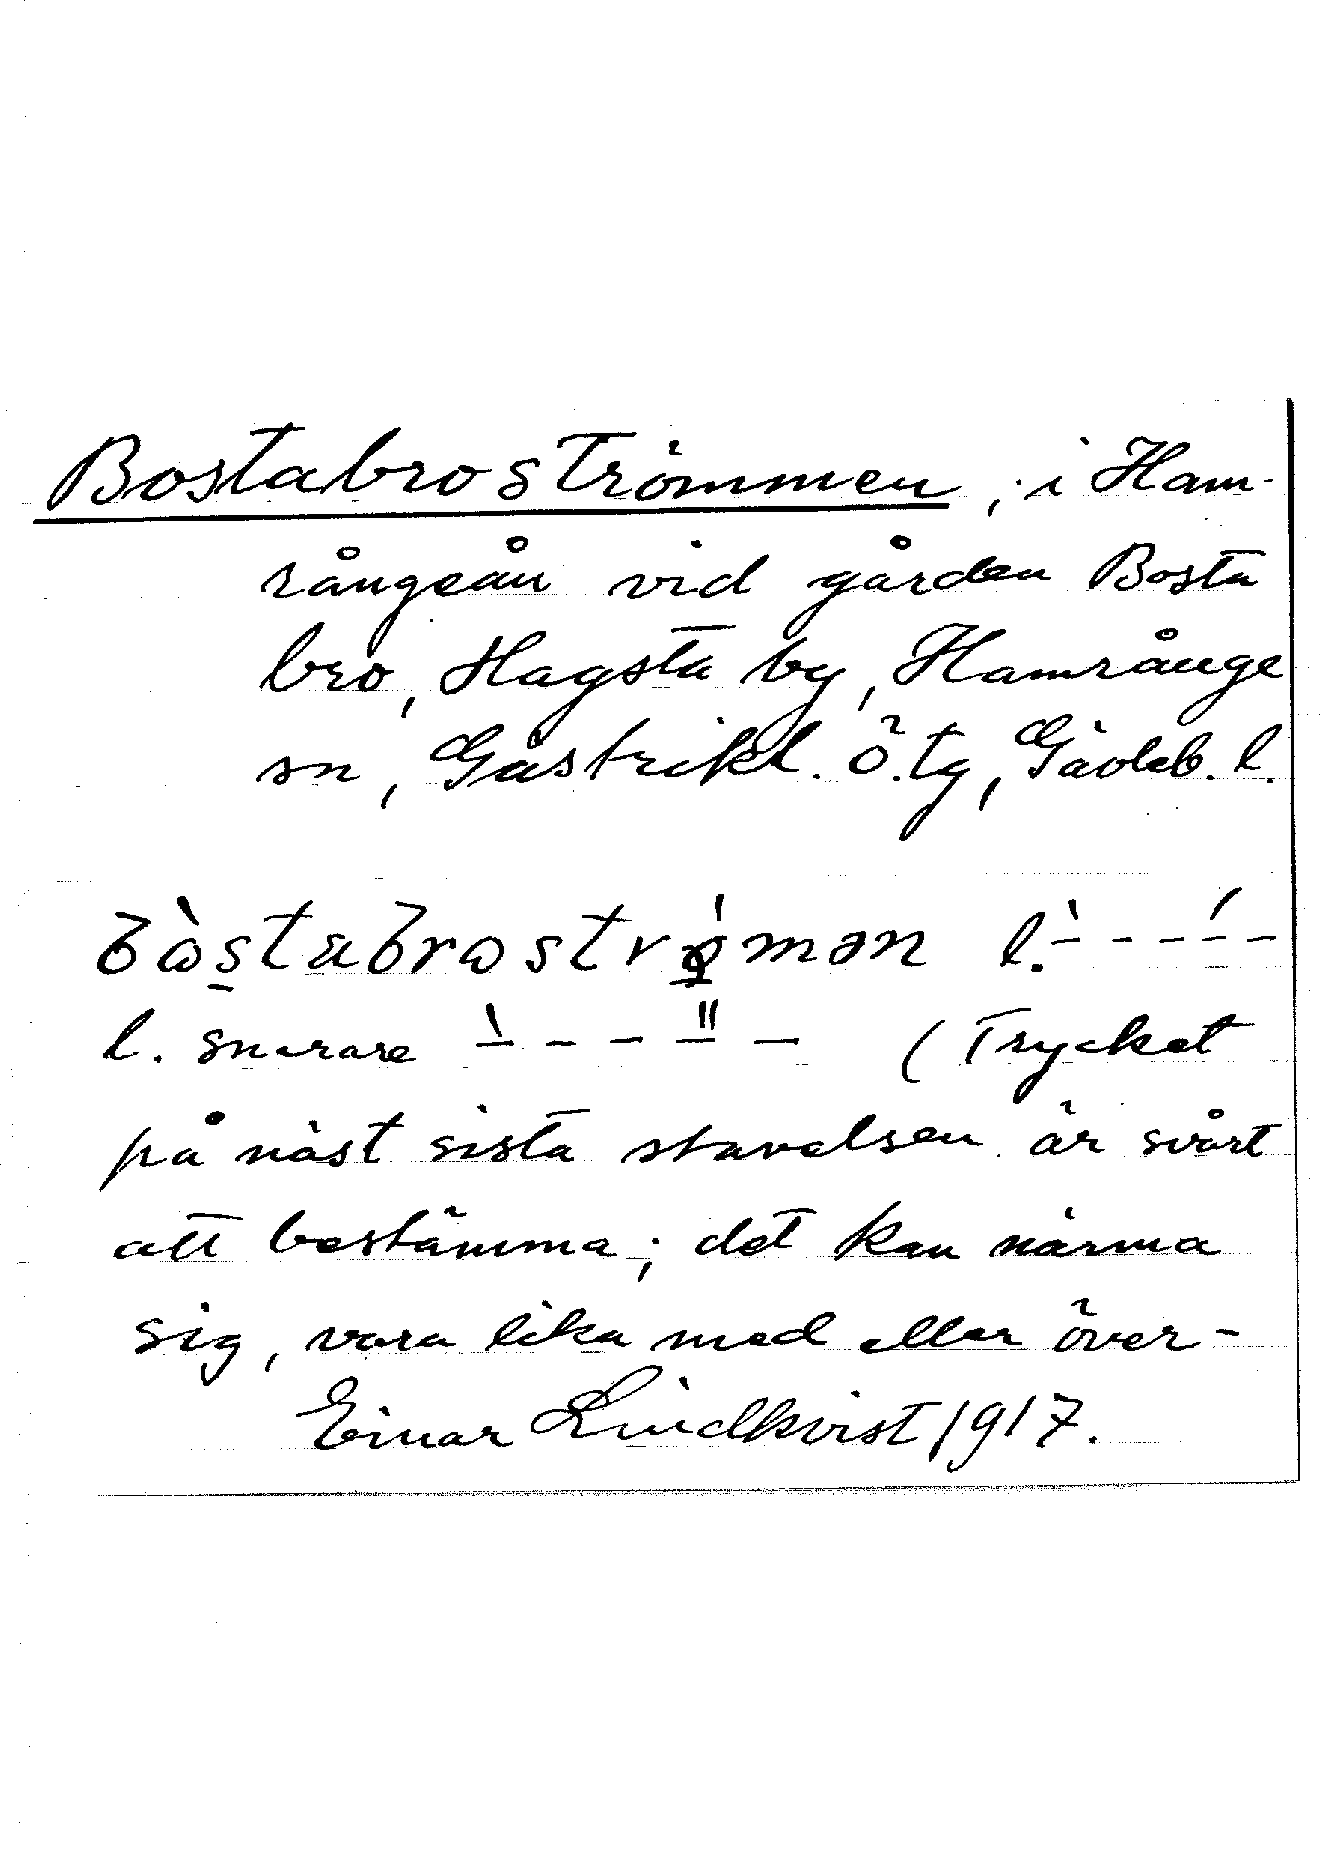 Bostabroströmmen, i Ham-
rångeån vid gården Bosta
bro, Hagsta by, Hamrånge
sn, Gästrikl. Ö. tg, Gävleb. l.
bòstabroström̀ən l. `- - - ´- -
l. snarare `- - - ̎- - (Trycket
på näst sista stavelsen är svårt
att bestämma; det kan närma
sig, vara lika med eller över-
Einar Lindkvist 1917.